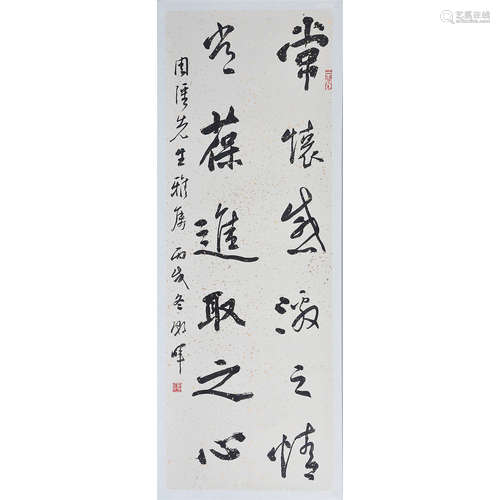 常懷感激之情
常葆進取之心
先生雅屬 丙戌冬